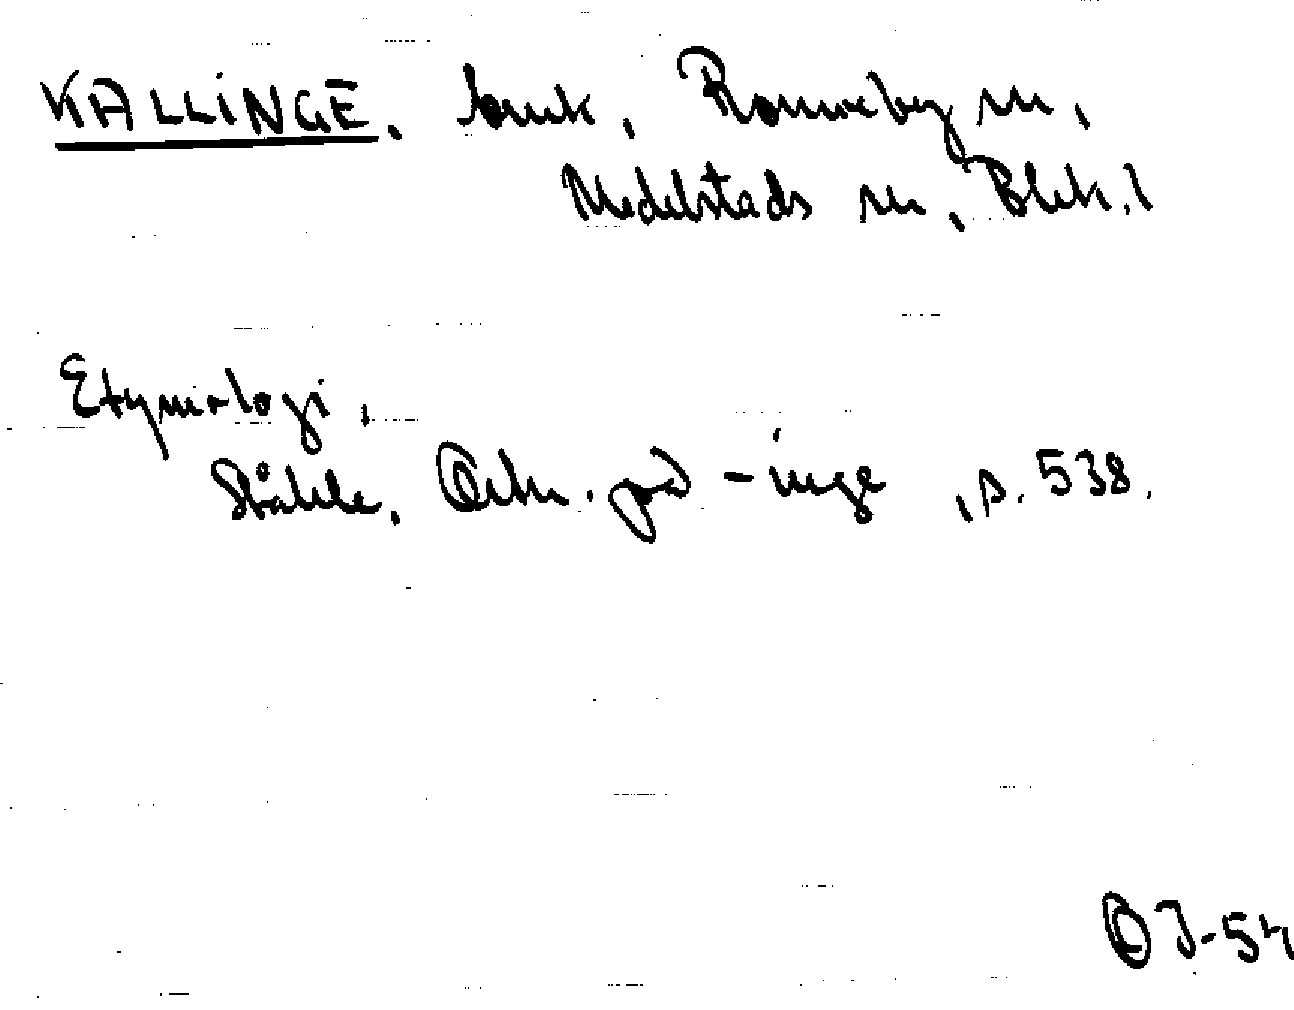 KALLINGE, bruk, Ronneby sn,
Medelstads hd, Blek.l
Etymologi,
Ståhle, Ortn. på -inge, s. 538.
OJ-54